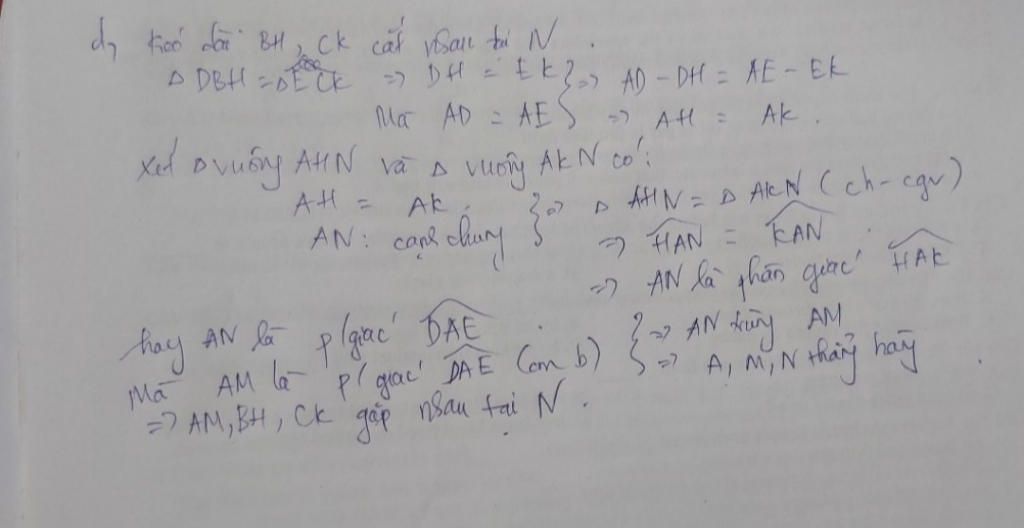 d, Kéo dài BH, CK cắt nhau tại N.
Δ DBH = Δ ECK => DH = EK } => AD - DH = AE - EK
Mà AD = AE } => AH = AK.
Xét Δ vuông AHN và Δ vuông AKN có:
AH = AK. } => Δ AHN = Δ AKN (ch - cgv)
AN: cạnh chung } => HAN = KAN
=> AN là phân giác HAK
hay AN là p/giác DAE. } => AN trùng AM
Mà AM là p/giác DAE (cm b) } => A, M, N thẳng hàng.
=> AM, BH, CK gặp nhau tại N.